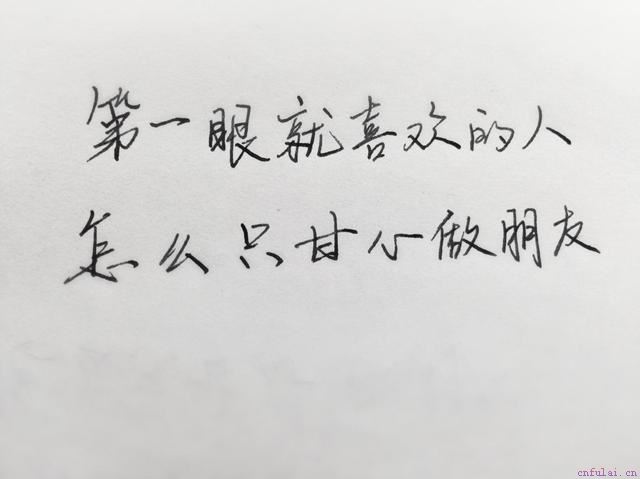 第一眼就喜欢的人
怎么只甘心做朋友
cnfulai.cn